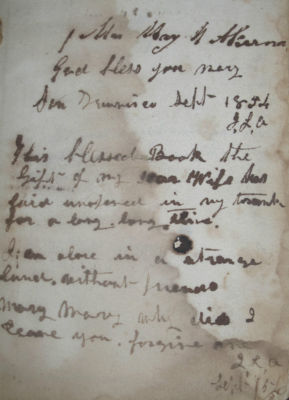 Mrs Mary
God bless you Mary
San Francisco Sept 1854
J L A
This blessed Book the
Gift of my dear Wife has
laid unopened in my trunk
for a long long time.
I am alone in a strange
land, without friends
Mary Mary why did I
leave you. forgive me
J L A
Sept